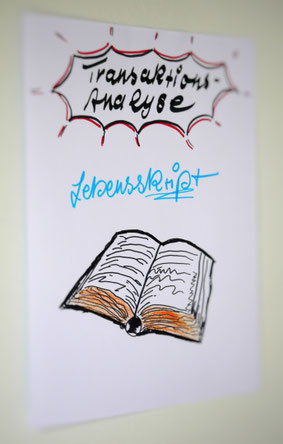 Transaktions-
Analyse
Lebensskript